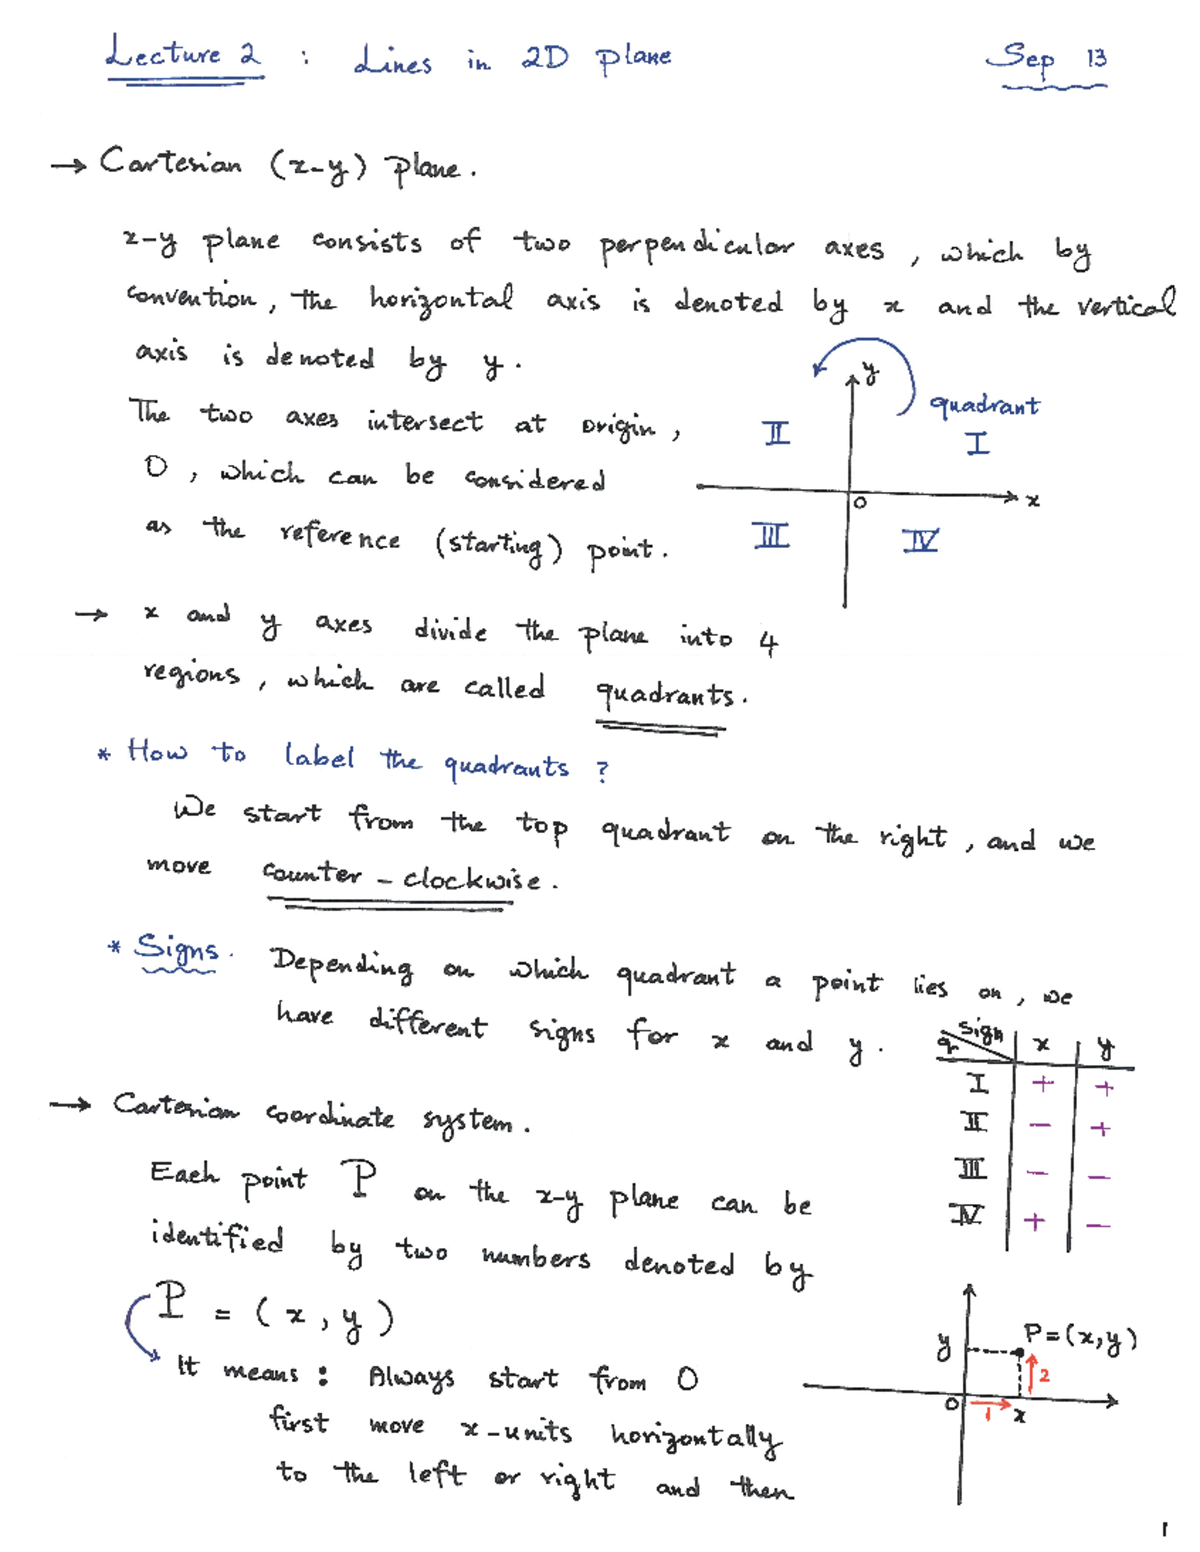 Lecture 2 : Lines in 2D plane Sep 13
→ Cartesian (x-y) plane.
x-y plane consists of two perpendicular axes, which by
convention, the horizontal axis is denoted by x and the vertical
axis is denoted by y.
y
quadrant
The two axes intersect at origin,
II I
O, which can be considered
x
O
as the reference (starting) point.
III IV
→ x and y axes divide the plane into 4
regions, which are called quadrants.
* How to label the quadrants ?
We start from the top quadrant on the right, and we
move counter-clockwise.
* Signs. Depending on which quadrant a point lies on, we
have different signs for x and y.
sign x y
q
I + +
II - +
III - -
IV + -
→ Cartesian coordinate system.
Each point P on the x-y plane can be
identified by two numbers denoted by
P = (x, y)
y P=(x,y)
2
O 1 x
It means : Always start from O
first move x-units horizontally
to the left or right and then
1